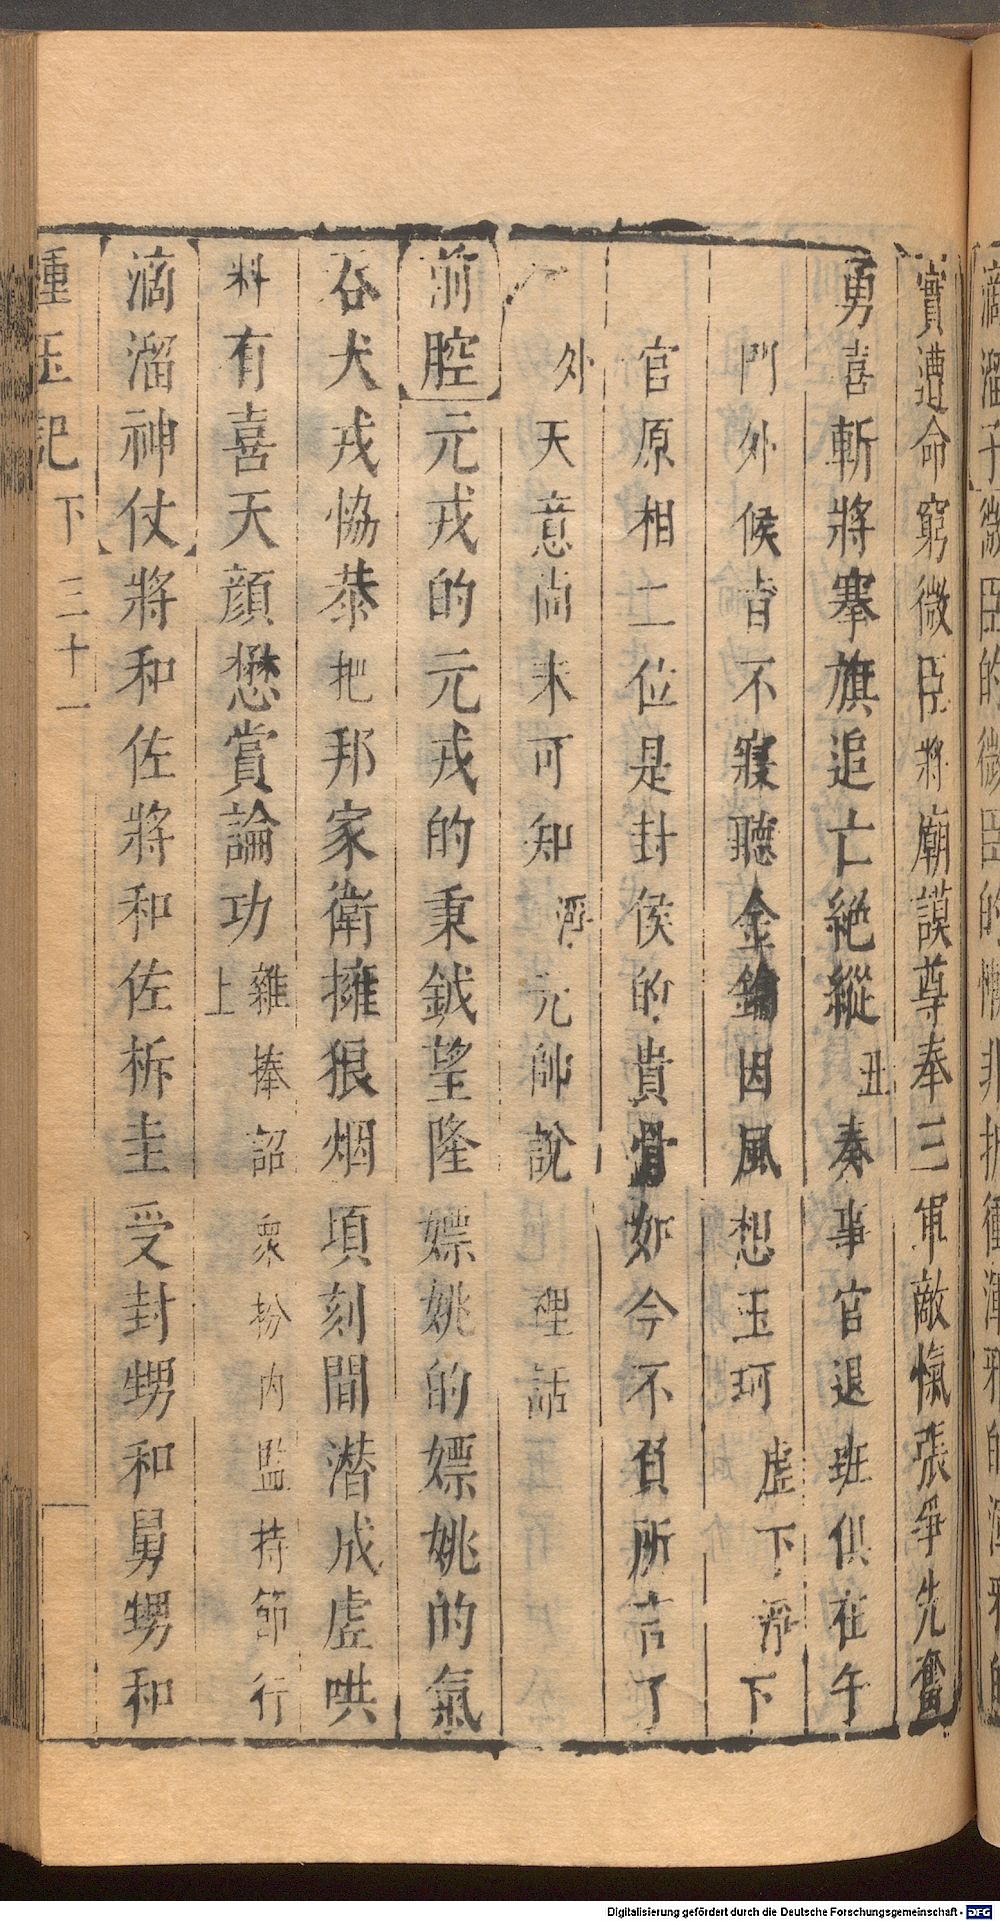 滴溜子微臣的微臣的
實遭命窮微臣將廟謨尊奉三軍敵愾張爭先奮
勇喜斬將搴旗追亡絕縱丑奏事官退班俱在午
門外候旨不寢聽金鑰因風想玉珂虛下淨下
官原相二位是封侯的貴骨如今不負所言了
外天意尚未可知淨元帥說裡話
前腔元戎的元戎的秉鉞望隆嫖姚的嫖姚的氣
吞犬戎恊恭把邦家衛擁狼烟頃刻間潜成虛哄
料有喜天顔懋賞論功上雜捧詔衆扮內監持節行
滴溜神仗將和佐將和佐析圭受封甥和舅甥和
種玉記下三十一
Digitalisierung gefördert durch die Deutsche Forschungsgemeinschaft - DFG